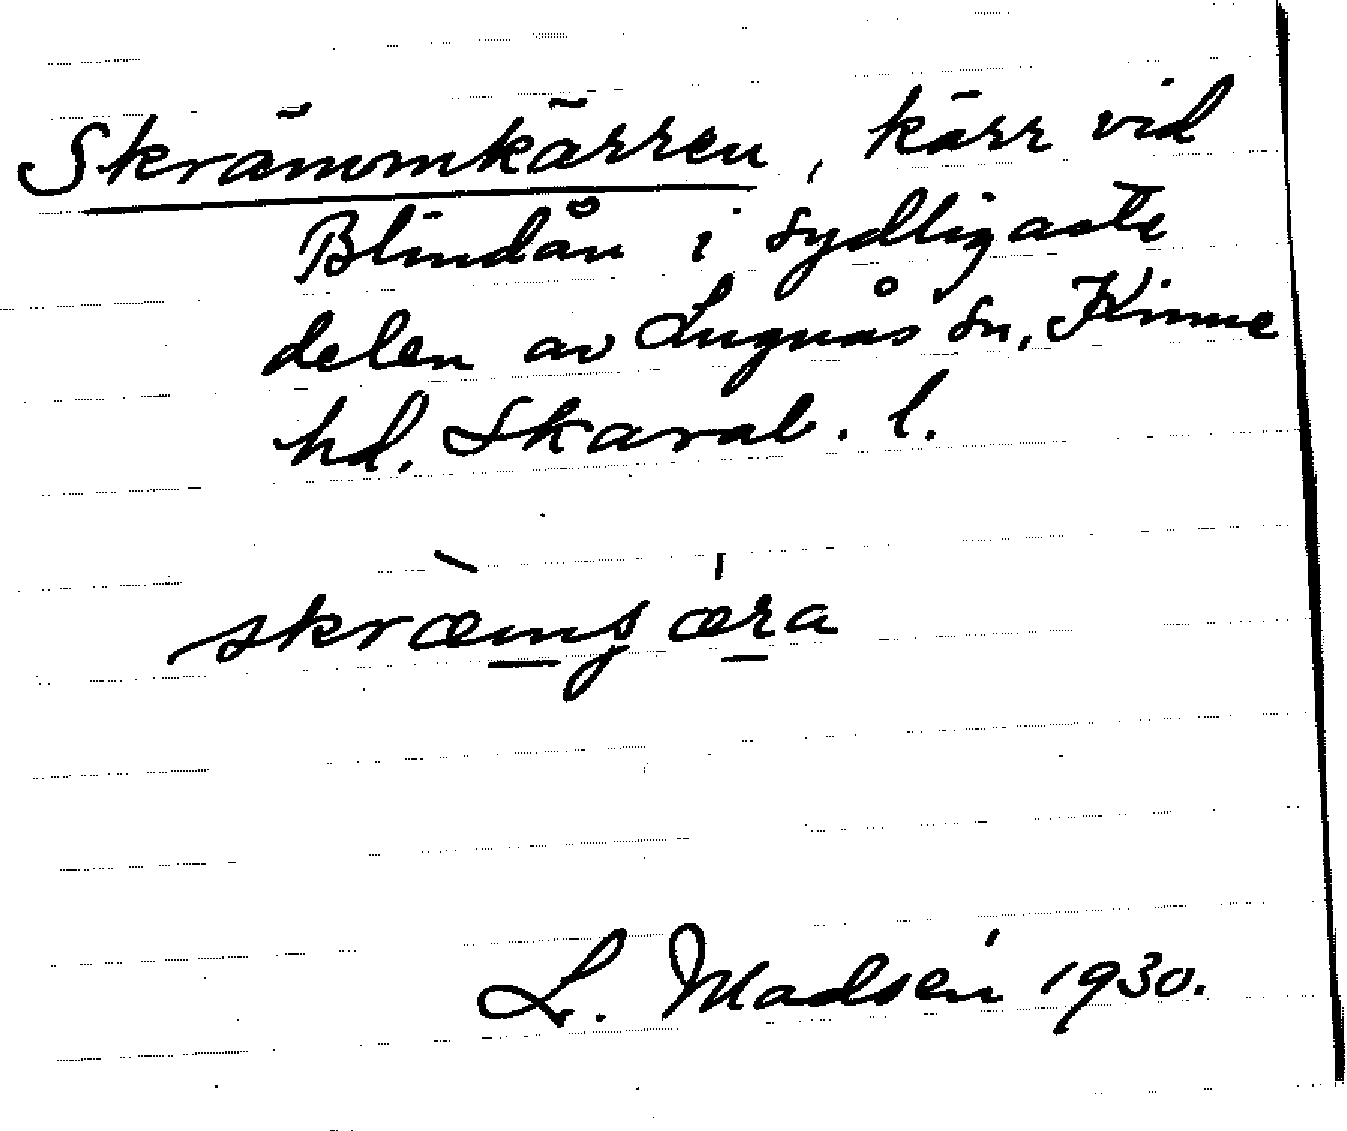 Skrämomkärren, kärr vid
Blindån i sydligaste
delen av Lugnås sn, Kinne
hd. Skarab. l.
skræ̀mʃæ̍ra
L. Madsén 1930.